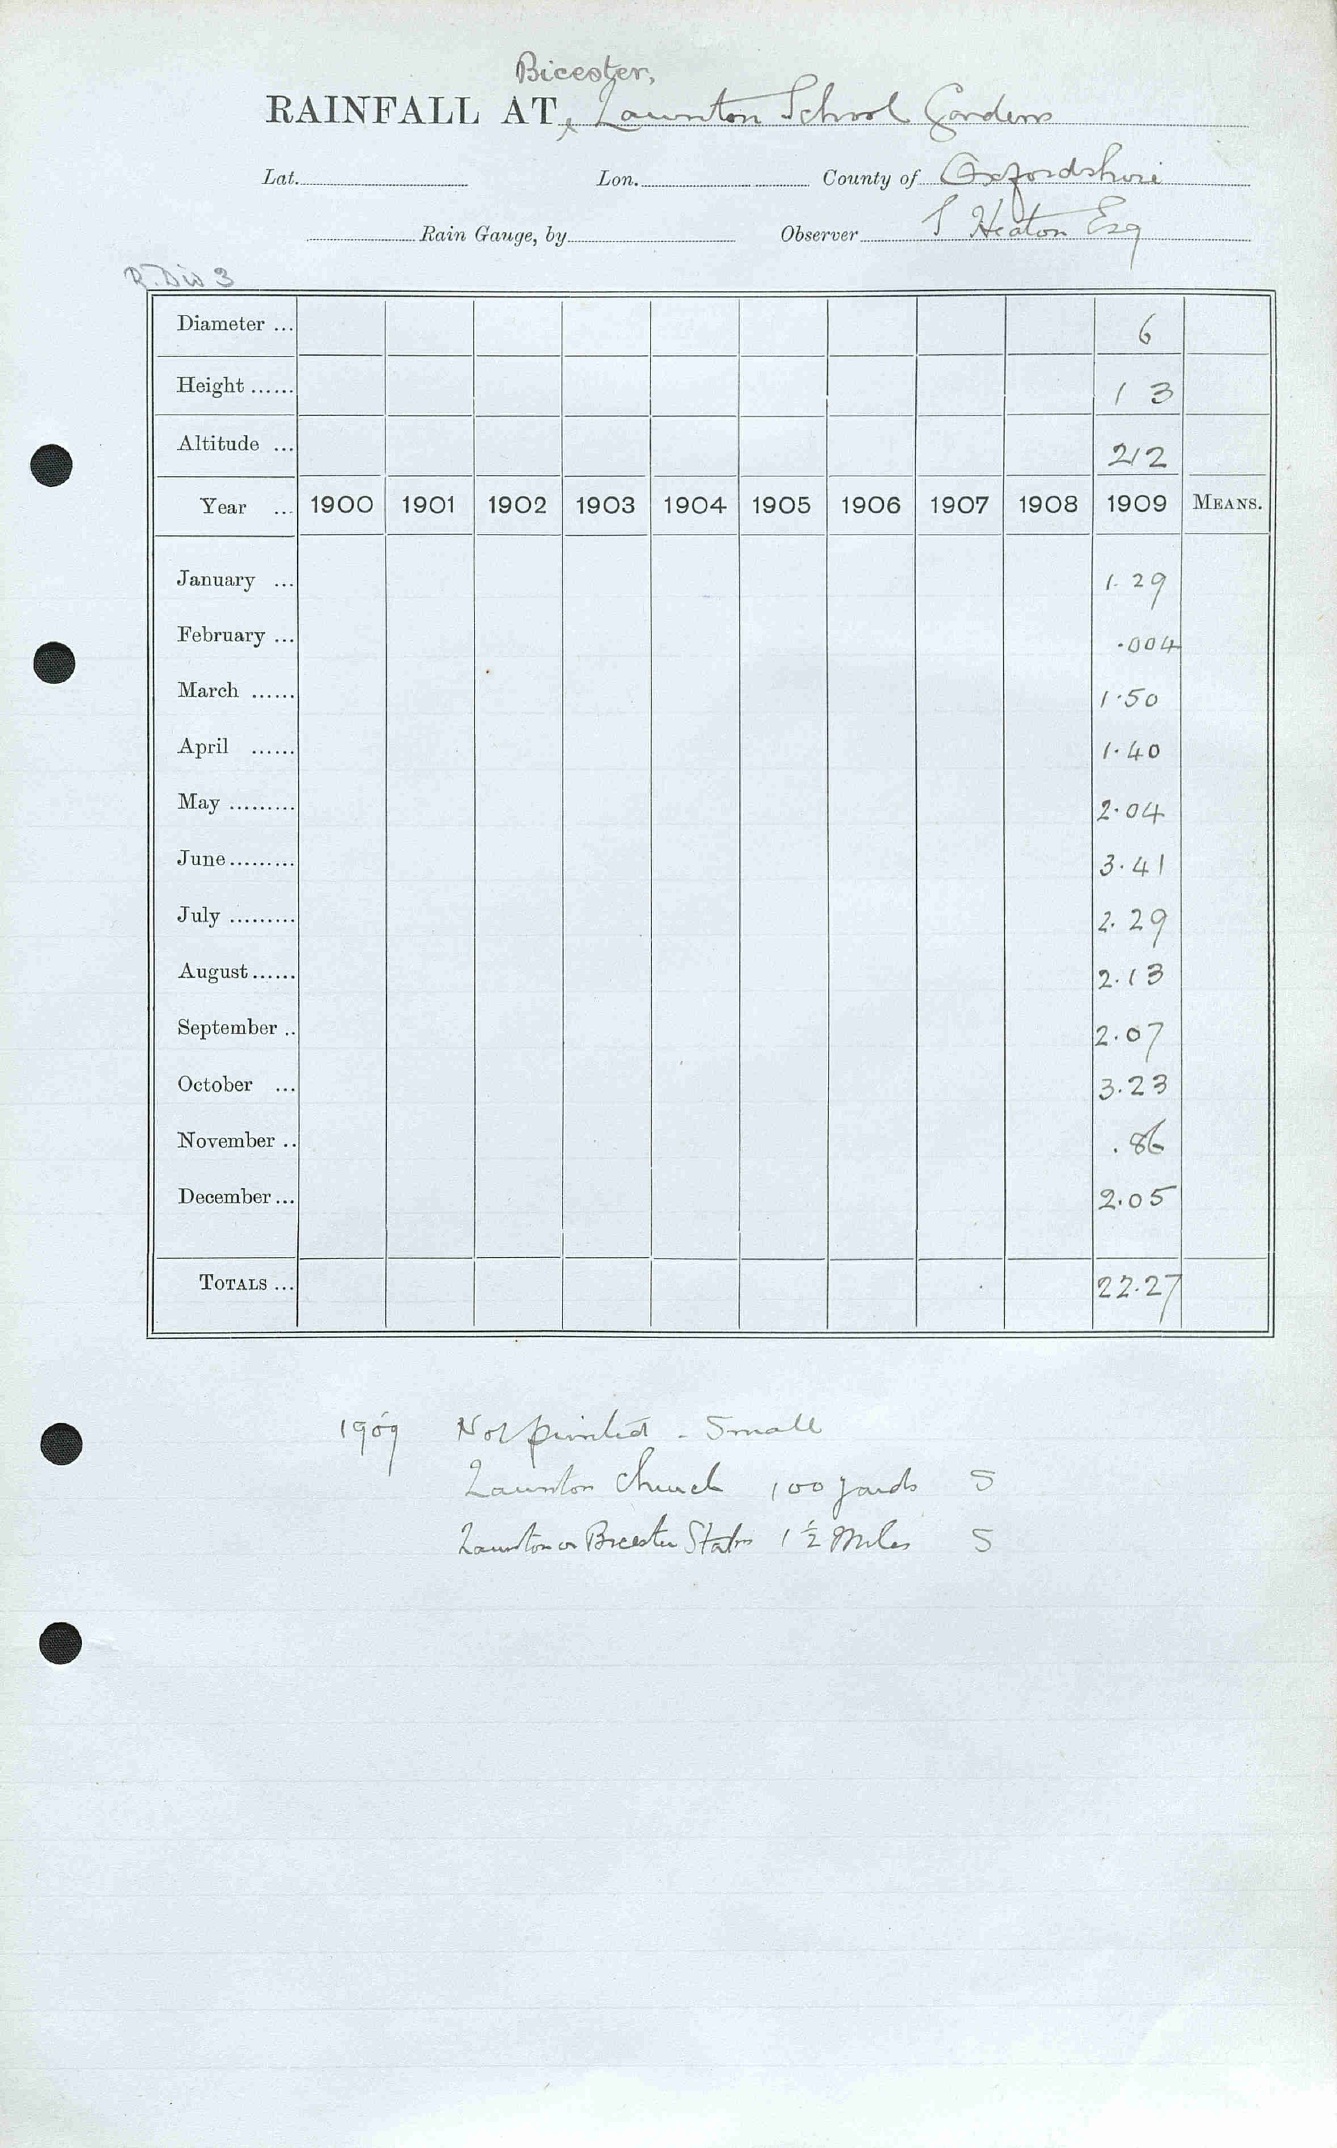 Bicester,
RAINFALL AT Launton School Gardens
Lat. Lon. County of Oxfordshire
Rain Gauge, by Observer T Heaton Esq
R. Div 3
Diameter ... 6
Height ...... 1 3
Altitude ... 212
Year ... 1900 1901 1902 1903 1904 1905 1906 1907 1908 1909 MEANS.
January ... 1.29
February ... .004
March ...... 1.50
April ...... 1.40
May ......... 2.04
June ......... 3.41
July ......... 2.29
August ...... 2.13
September .. 2.07
October ... 3.23
November .. .86
December ... 2.05
TOTALS ... 22.27
1909 Not printed - Small
Launton Church 100 yards S
Launton or Bicester Statn 1 1/2 Miles S